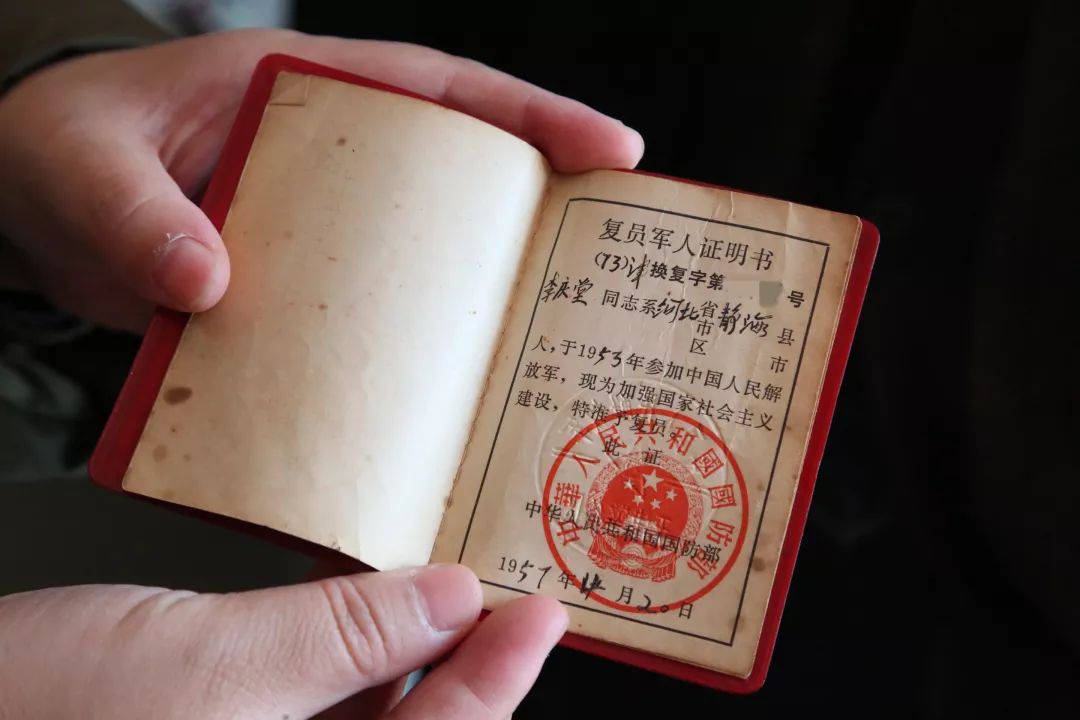 复员军人证明书
(73)津换复字第 号
李庆堂 同志系河北省市区静海县市
人，于1953年参加中国人民解
放军，现为加强国家社会主义
建设，特准予复员。
此 证
中华人民共和国国防部
1957年4月20日
中華人民共和國國防部